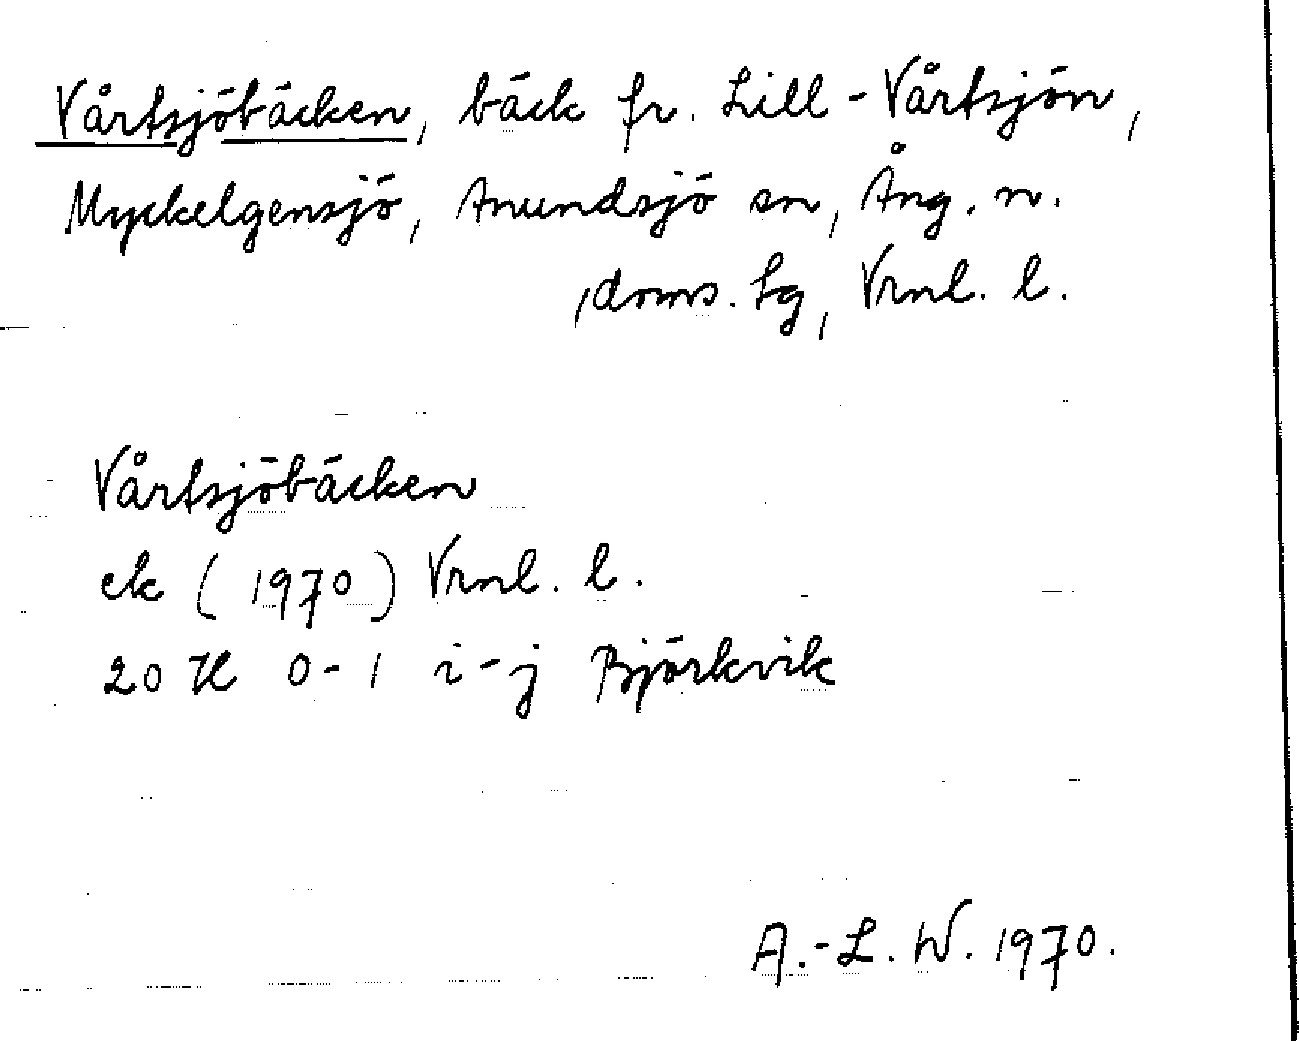 Vårtsjöbäcken, bäck fr. Lill-Vårtsjön,
Myckelgensjö, Anundsjö sn, Ång. n.
doms. lg, Vrnl. l.
Vårtsjöbäcken
ek (1970) Vrnl. l.
20 H 0-1 i-j Björkvik
A.-L. W. 1970.